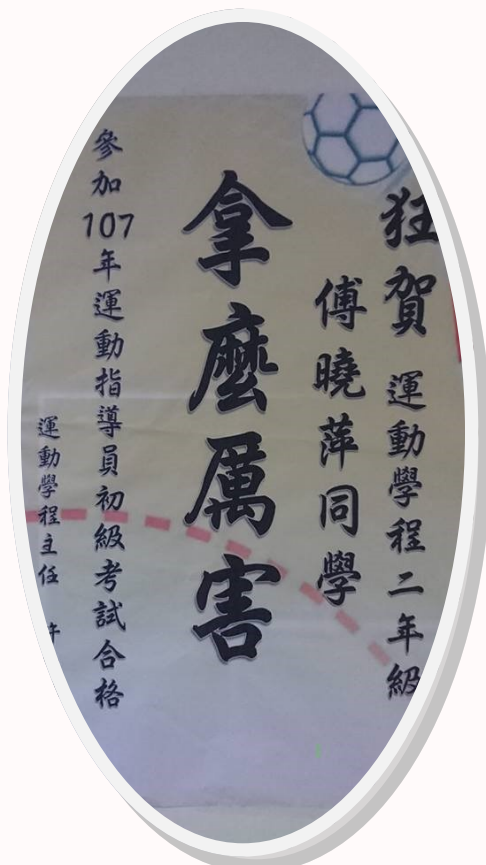 狂賀 運動學程二年級
傅曉萍同學
拿麼厲害
參加107年運動指導員初級考試合格
運動學程主任